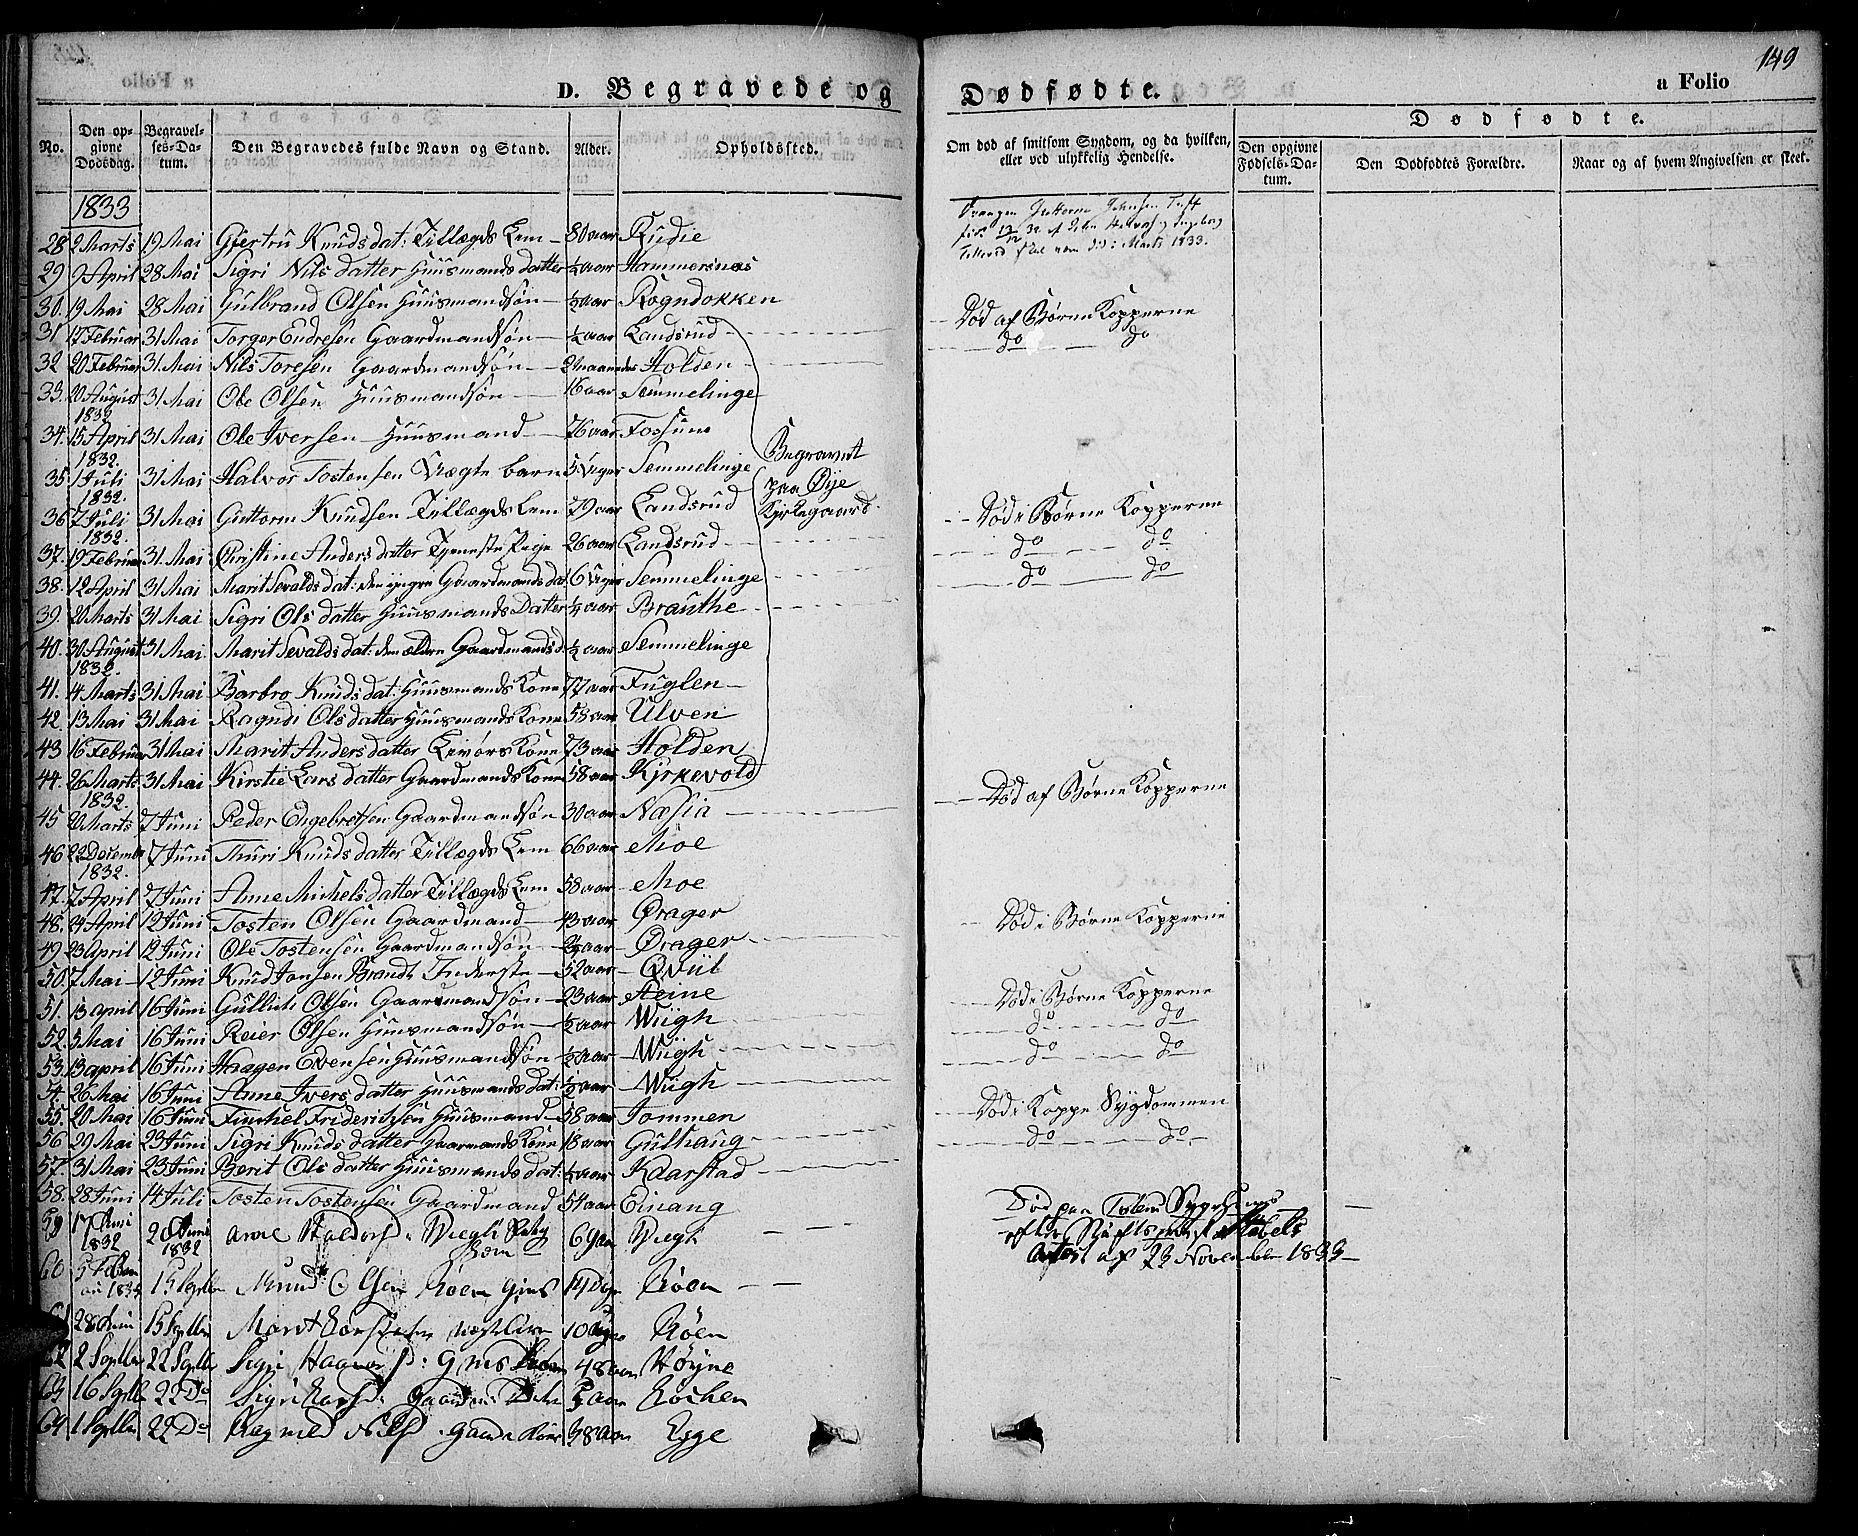 149
D. Begravede og Dødfødte. a Folio
No.
Den opgivne Dødsdag.
Begravelses-Datum.
Den Begravedes fulde Navn og Stand.
Alder.
Opholdssted.
Om død af smitsom Sygdom, og da hvilken, eller ved ulykkelig Hendelse.
Dødfødte.
Den opgivne Fødsels-Datum.
Den Dødfødtes Forældre.
Naar og af hvem Angivelsen er skeet.
1833
28 2 Marts 19 Mai Gjertru Knudsdat: Tillægds Lem 80 aar Rudie
29 9 April 28 Mai Sigri Nilsdatter Huusmands datter ½ aar Hammersnæs
30. 19 Mai 28 Mai Gulbrand Olsen Huusmandsøn ½ aar Rogndokken
31 17 Februar 31 Mai Torger Endresen Gaardmandsøn ½ aar Landsrud Død af Børne Kopperne
32 20 Februar 31. Mai Nils Toresen Gaardmandsøn 2 maaneder Holden do do
33. 20 August 1832 31 Mai Ole Olsen Huusmandsøn 16 aar Semmelinge
34. 15 April 1832. 31 Mai Ole Iversen Huusmand 76 aar Fossum
Begravet
35 1 Juli 1832. 31 Mai Halvor Tostensen Vægte barn 5 Uger Semmelinge
paa Øije
36 7 Juli 1832. 31 Mai Guttorm Knudsen Tillægds Lem 79 aar Landsrud Død i Børne Kopperne
Kjirkegaard.
37. 19 Februar 31 Mai Christine Andersdatter Tjeneste Pige 26 aar Landsrud do do
38. 12 April 31 Mai Marit Sevaldsdat: den yngre Gaardmands dat 6 Uger Semmelinge do do
39. 20 Marts 31 Mai Sigri Olsdatter Huusmands Datter ¼ aar Brauthe
40. 30 August 1832. 31 Mai. Marit Sevaldsdat: den ældre Gaardmandsd. ½ aar Semmelinge
41. 4 Marts 31 Mai Barbro Knudsdat: Huusmands Kone 77 aar Fuglen
42. 13 Mai 31 Mai Ragndi Olsdatter Huusmands Kone 58 aar Ulven
43 16 Februar 31 Mai Marit Andersdatter Kone 73 aar Holden
44. 26 Marts 1832. 31 Mai Kirstie Larsdatter Gaardmands Kone 58 aar Kjrkevold Død af Børne Kopperne
45 20 Marts 7 Juni Peder Engebretsen Gaardmandsøn 30 aar Næsia
46 22 December 1832. 7 Juni Thuri Knudsdatter Tillægds Lem 66 aar Moe
47. 7 April 7 Juni Anne Michelsdatter Tillægds Lem 58 aar Moe
48. 24 April 12 Juni Tosten Olsen Gaardmand 43 aar Ørager Død i Børne Kopperne
49. 23 April 12 Juni Ole Tostensen Gaardmandsøn aar Ørager
50. 7 Mai 12 Juni Knud Jonsen Brandt Inderste 52 aar Qviil
51. 13 april 16 Juni Gullich Olsen Gaardmandsøn 23 aar Steine Død i Børne Kopperne
52. 5 Mai 16 Juni Reier Olsen Huusmandsøn ½ aar Wiigh do do
53. 13 april 16 Juni Haagen Evensen Huusmandsøn ½ aar Wiigh do do
54. 26 Mai 16 Juni Anne Iversdatter Huusmands dat: ½ aar Wiigh
55. 20 Mai 16 Juni Finchel Frideriksen Huusmand 58 aar Tommen Død i Koppe Sÿgdommen
56 29 Mai 23 Juni Sigri Knudsdatter Gaarmands Kone 18 aar Gulhaug do do
57. 31 Mai 23 Juni Berit Olsdatter Huusmands dat: ½ aar Kaarstad
58. 28 Juni 14 Juli Tosten Tostensen Gaardmand 54 aar Einang
59 17 Juni 1832 20 Juni 1832 Arne 6 aar Viegh
efter Attest af 23 November 1833
60 1833 15 Olsen Røen 14 Røen
61 28 15 Marit 10 Røen
62 2 22 Sigri 48 aar Høyne
63 16 22 Do Sigri aar Lochen
64 1 22 Do Ragnild Nilsd. 38 Aar Egge